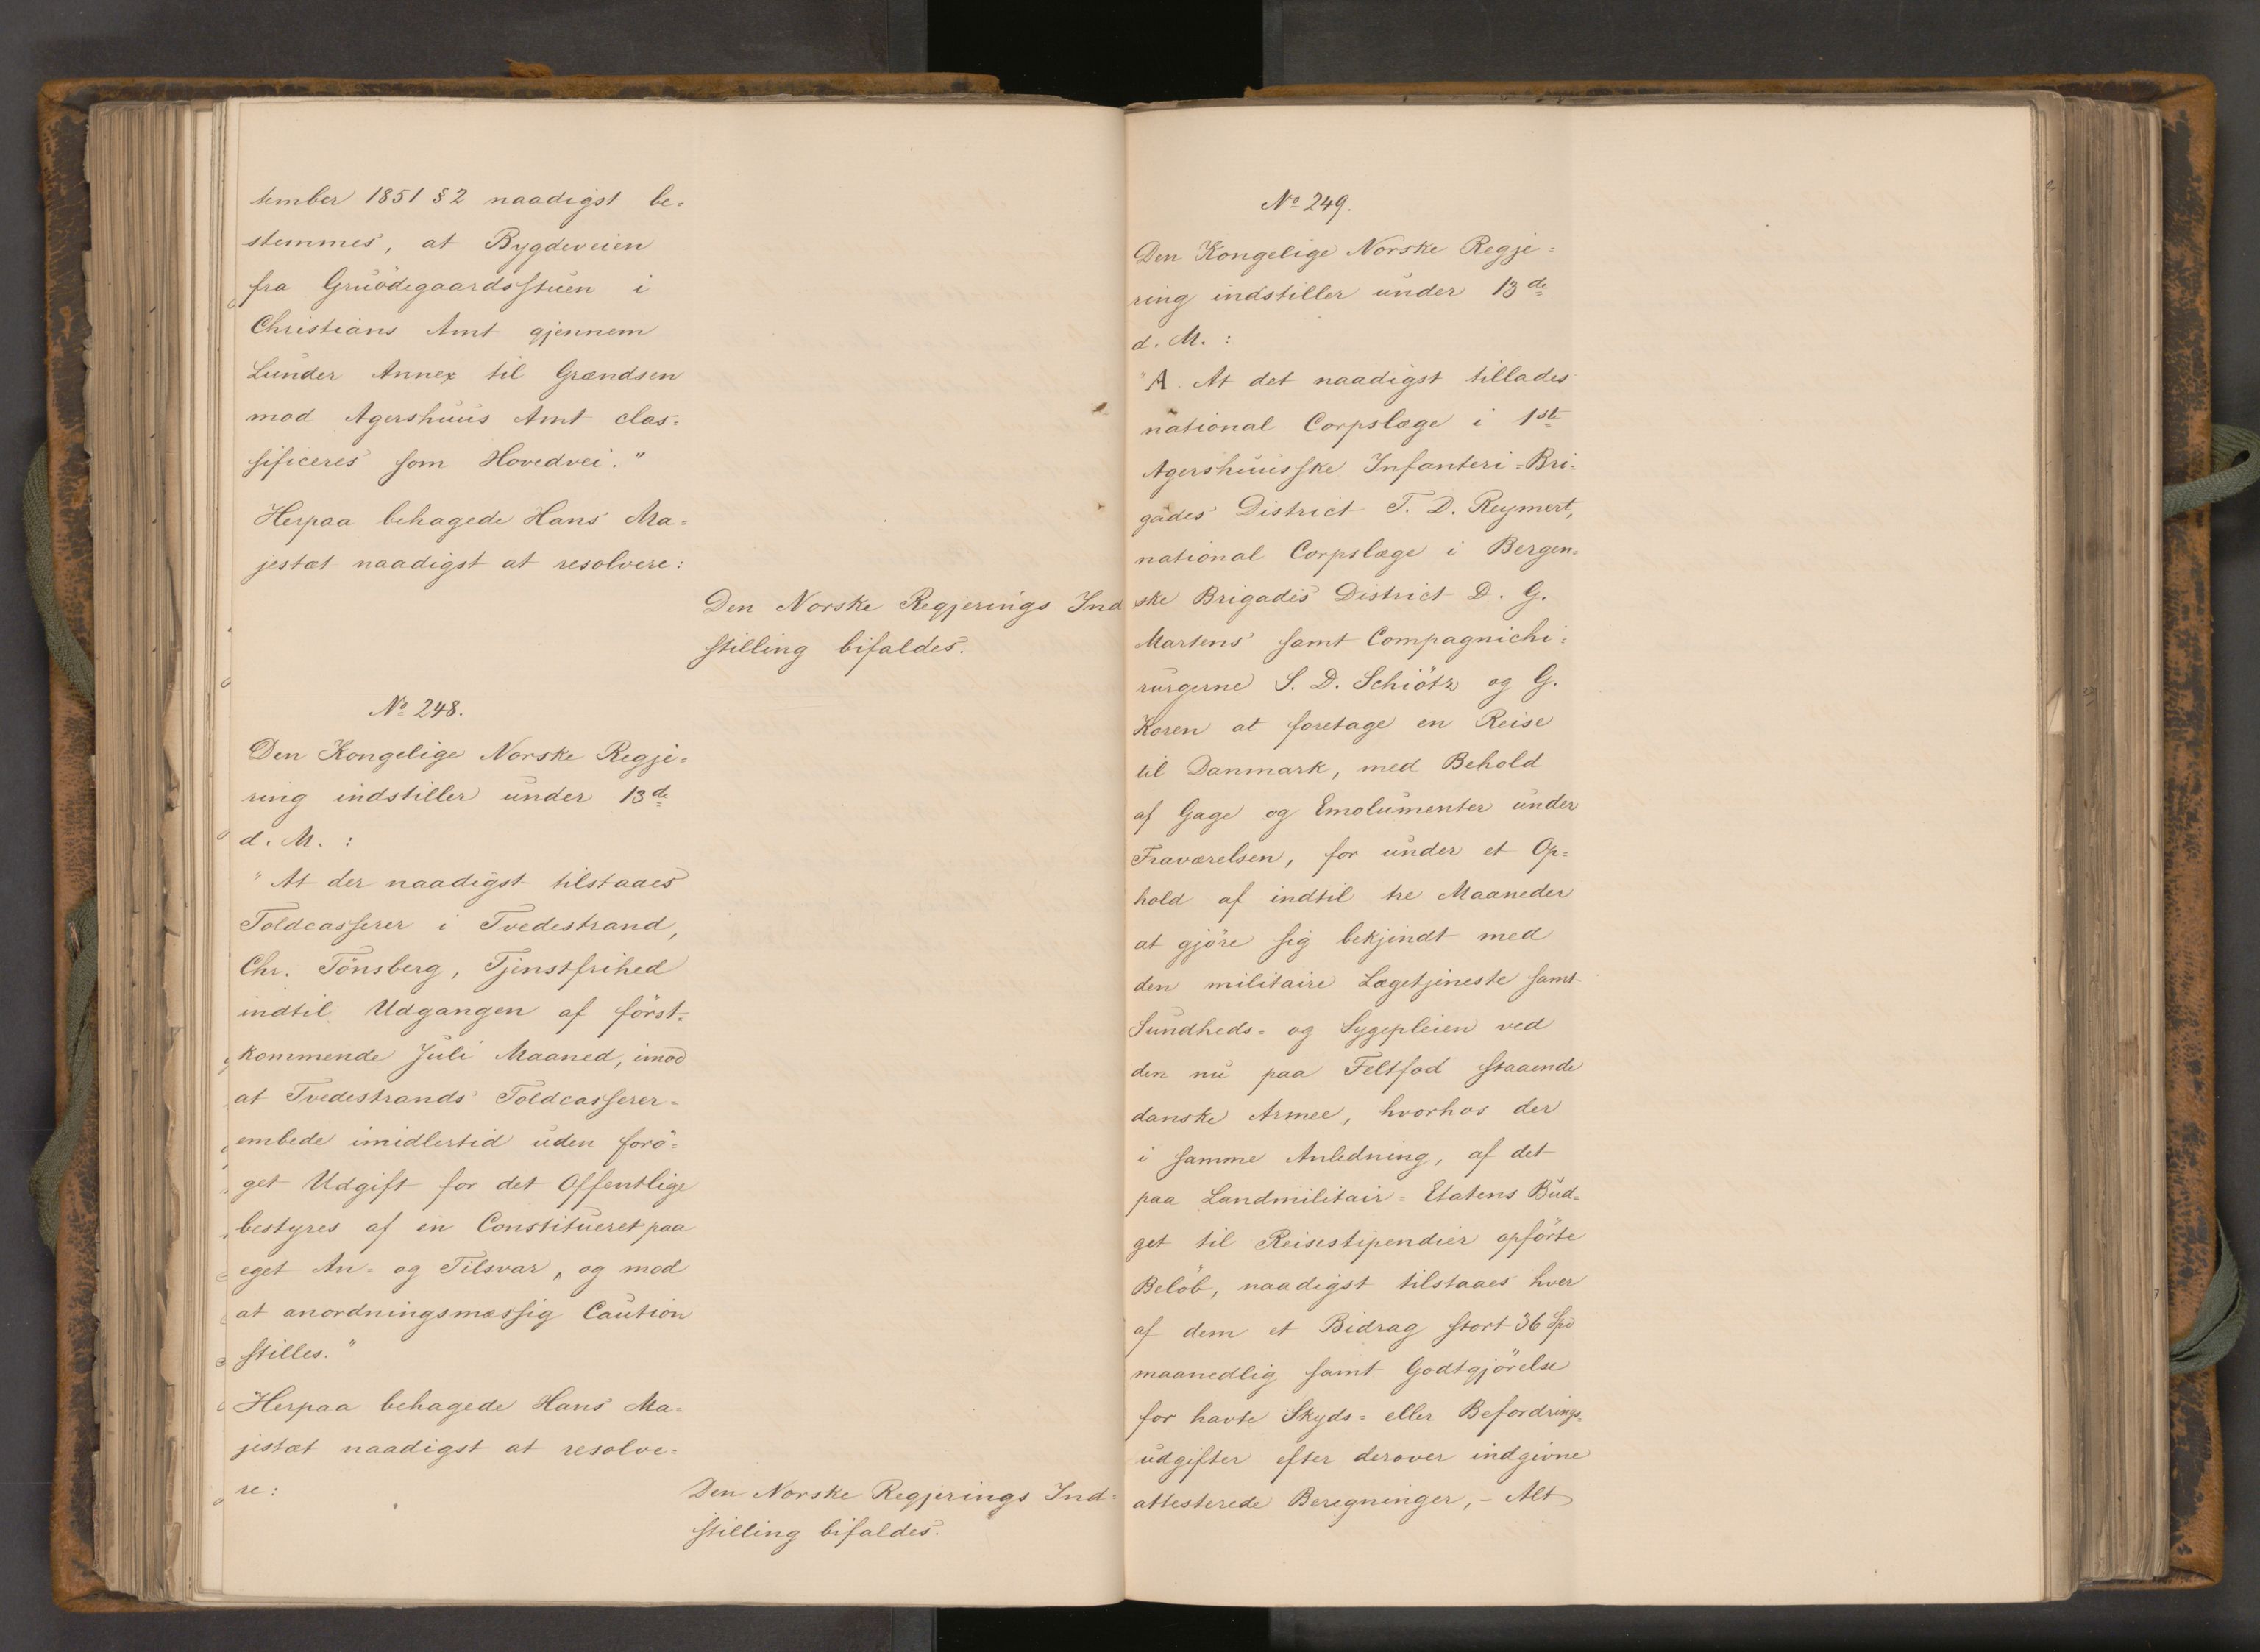 tember 1851 § 2 naadigst be=
stemmes, at Bygdeveien
fra Gruødegaardsstuen i
Christians Amt gjennem
Lunder Annex til Grændsen
mod Agershuus Amt clas=
sificeres som Hovedvei."
Herpaa behagede Hans Ma=
jestæt naadigst at resolvere:
Den Norske Regjerings Ind
stilling bifaldes.
No 248.
Den Kongelige Norske Regje=
ring indstiller under 13de
d. M. :
"At der naadigst tilstaaes
Toldcasserer i Tvedestrand,
Chr. Tönsberg, Tjenstfrihed
indtil Udgangen af först=
kommende Juli Maaned, imod
at Tvedestrands Toldcasserer=
embede imidlertid uden forö=
get Udgift for det Offentlige
bestyres af en Constitueret paa
eget An= og Tilsvar, og mod
at anordningsmæssig Caution
stilles."
Herpaa behagede Hans Ma=
jestæt naadigst at resolve=
re:
Den Norske Regjerings Ind=
stilling bifaldes.
No 249.
Den Kongelige Norske Regje=
ring indstiller under 13de
d. M. :
"A. At det naadigst tillades
national Corpslæge i 1ste
Agershuusske Infanteri=Bri=
gades District T. D. Reymert,
national Corpslæge i Bergen=
ske Brigades District D. G.
Martens samt Compagnichi=
rurgerne S. D. Schiötz og G.
Koren at foretage en Reise
til Danmark, med Behold
af Gage og Emolumenter under
Fraværelsen, for under et Op=
hold af indtil tre Maaneder
at gjöre sig bekjendt med
den militaire Lægetjeneste samt
Sundheds= og Sygepleien ved
den nu paa Feltfod staaende
danske Armee, hvorhos der
i samme Anledning, af det
paa Landmilitair=Etatens Bud=
get til Reisestipendier opförte
Belöb, naadigst tilstaaes hver
af dem et Bidrag stort 36 Spd
maanedlig samt Godtgjörelse
for havte Skyds= eller Befordrings=
udgifter efter derover indgivne
attesterede Beregninger, – Alt